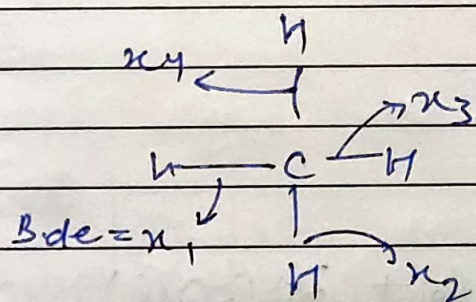 H
x4
x3
H C H
B.de = x1
H
x2